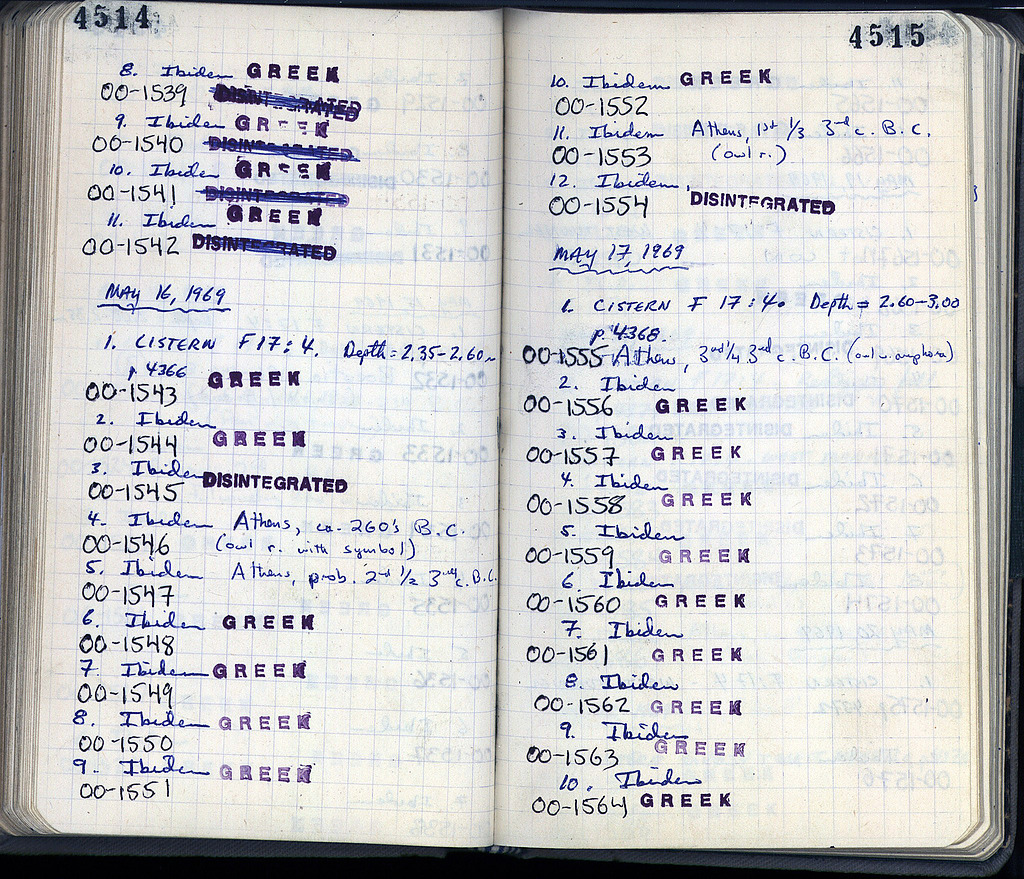 4514
8. Ibidem GREEK
OO-1539 DISINTEGRATED
9. Ibidem GREEK
OO-1540 DISINTEGRATED
10. Ibidem GREEK
OO-1541 DISINTEGRATED
11. Ibidem GREEK
OO-1542 DISINTEGRATED
MAY 16, 1969
1. CISTERN F17:4. Depth=2.35-2.60m
p. 4366 GREEK
OO-1543
2. Ibidem GREEK
OO-1544
3. Ibidem DISINTEGRATED
OO-1545
4. Ibidem Athens, ca. 260's B.C.
OO-1546 (owl r. with symbol)
5. Ibidem Athens, prob. 2nd 1/2 3rd c. B.C.
OO-1547
6. Ibidem GREEK
OO-1548
7. Ibidem GREEK
OO-1549
8. Ibidem GREEK
OO-1550
9. Ibidem GREEK
OO-1551
4515
10. Ibidem GREEK
OO-1552
11. Ibidem Athens, 1st 1/3 3rd c. B.C.
OO-1553 (owl r.)
12. Ibidem,
OO-1554 DISINTEGRATED
MAY 17, 1969
1. CISTERN F 17:4. Depth = 2.60-3.00
p. 4368.
OO-1555 Athens, 3rd 1/4 3rd c. B.C. (owl w. amphora)
2. Ibidem
OO-1556 GREEK
3. Ibidem
OO-1557 GREEK
4. Ibidem
OO-1558 GREEK
5. Ibidem
OO-1559 GREEK
6. Ibidem
OO-1560 GREEK
7. Ibidem
OO-1561 GREEK
8. Ibidem
OO-1562 GREEK
9. Ibidem
OO-1563 GREEK
10. Ibidem
OO-1564 GREEK